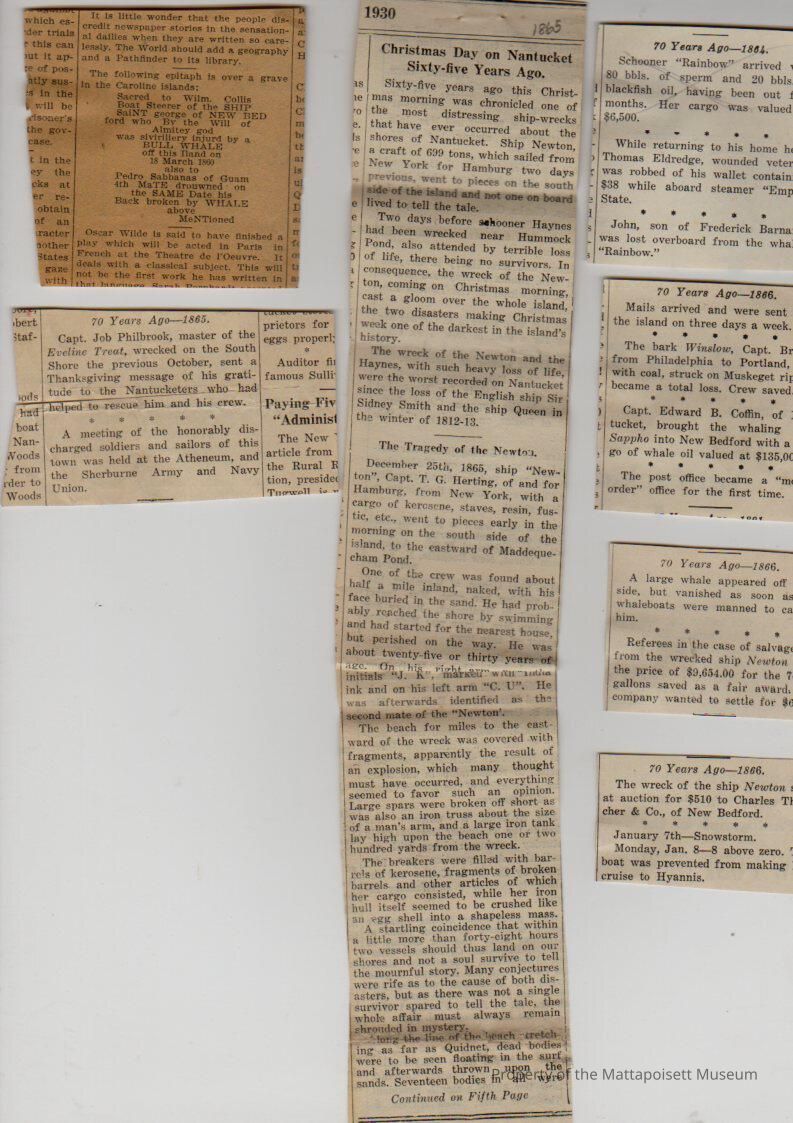 which es-
der trials
this can
ut it ap-
e of pos-
ntly sus-
s in the
will be
risoner's
the gov-
case.
t in the
ey the
cks at
er re-
obtain
of an
racter
nother
States
gaze
with
It is little wonder that the people dis-
credit newspaper stories in the sensation-
al dailies when they are written so care-
lessly. The World should add a geography
and a Pathfinder to its library.
The following epitaph is over a grave
in the Caroline islands:
Sacred to Wilm. Collis
Boat Steerer of the SHIP
SaiNT george of NEW BED
ford who By the Will of
Almitey god
was sivirillery injurd by a
BULL WHALE
off this lland on
18 March 1860
also to
Pedro Sabbanas of Guam
4th MaTE drouwned on
the SAME Date his
Back broken by WHALE
above
MeNTioned
Oscar Wilde is said to have finished a
play which will be acted in Paris in
French at the Theatre de l'Oeuvre. It
deals with a classical subject. This will
not be the first work he has written in
that language. Sarah
obert
Staf-
oods
had
boat
Nan-
Woods
from
rder to
Woods
70 Years Ago—1865.
Capt. Job Philbrook, master of the
Eveline Treat, wrecked on the South
Shore the previous October, sent a
Thanksgiving message of his grati-
tude to the Nantucketers who had
helped to rescue him and his crew.
* * * * *
A meeting of the honorably dis-
charged soldiers and sailors of this
town was held at the Atheneum, and
the Sherburne Army and Navy
Union.
prietors for
eggs properl
*
Auditor fi
famous Sulli
Paying Fiv
"Administ
The New
article from
the Rural R
tion, preside
Tugwell is
1930
1865
Christmas Day on Nantucket
Sixty-five Years Ago.
Sixty-five years ago this Christ-
mas morning was chronicled one of
the most distressing ship-wrecks
that have ever occurred about the
shores of Nantucket. Ship Newton,
a craft of 699 tons, which sailed from
New York for Hamburg two days
previous, went to pieces on the south
side of the island and not one on board
lived to tell the tale.
Two days before schooner Haynes
had been wrecked near Hummock
Pond, also attended by terrible loss
of life, there being no survivors. In
consequence, the wreck of the New-
ton, coming on Christmas morning,
cast a gloom over the whole island,
the two disasters making Christmas
week one of the darkest in the island's
history.
The wreck of the Newton and the
Haynes, with such heavy loss of life,
were the worst recorded on Nantucket
since the loss of the English ship Sir
Sidney Smith and the ship Queen in
the winter of 1812-13.
The Tragedy of the Newton.
December 25th, 1865, ship "New-
ton", Capt. T. G. Herting, of and for
Hamburg, from New York, with a
cargo of kerosene, staves, resin, fus-
tic, etc., went to pieces early in the
morning on the south side of the
island, to the eastward of Maddeque-
cham Pond.
One of the crew was found about
half a mile inland, naked, with his
face buried in the sand. He had prob-
ably reached the shore by swimming
and had started for the nearest house,
but perished on the way. He was
about twenty-five or thirty years of
age. On his right arm
initials "J. K", marked with India
ink and on his left arm "C. U". He
was afterwards identified as the
second mate of the "Newton'.
The beach for miles to the east-
ward of the wreck was covered with
fragments, apparently the result of
an explosion, which many thought
must have occurred, and everything
seemed to favor such an opinion.
Large spars were broken off short as
was also an iron truss about the size
of a man's arm, and a large iron tank
lay high upon the beach one or two
hundred yards from the wreck.
The breakers were filled with bar-
rels of kerosene, fragments of broken
barrels and other articles of which
her cargo consisted, while her iron
hull itself seemed to be crushed like
an egg shell into a shapeless mass.
A startling coincidence that within
a little more than forty-eight hours
two vessels should thus land on our
shores and not a soul survive to tell
the mournful story. Many conjectures
were rife as to the cause of both dis-
asters, but as there was not a single
survivor spared to tell the tale, the
whole affair must always remain
shrouded in mystery.
Along the line of the beach stretch-
ing as far as Quidnet, dead bodies
were to be seen floating in the surf
and afterwards thrown upon the
sands. Seventeen bodies in all were
Continued on Fifth Page
70 Years Ago—1864.
Schooner "Rainbow" arrived
80 bbls. of sperm and 20 bbls.
blackfish oil, having been out
months. Her cargo was valued
$6,500.
* * * * *
While returning to his home h
Thomas Eldredge, wounded veter
was robbed of his wallet contain
$38 while aboard steamer "Emp
State.
* * * * *
John, son of Frederick Barna
was lost overboard from the wha
"Rainbow."
70 Years Ago—1866.
Mails arrived and were sent
the island on three days a week.
* * * *
The bark Winslow, Capt. Br
from Philadelphia to Portland,
with coal, struck on Muskeget rip
became a total loss. Crew saved.
* * * * *
Capt. Edward B. Coffin, of
tucket, brought the whaling
Sappho into New Bedford with a
go of whale oil valued at $135,00
* * * * *
The post office became a "mo
order" office for the first time.
70 Years Ago—1866.
A large whale appeared off
side, but vanished as soon as
whaleboats were manned to ca
him.
* * * * *
Referees in the case of salvag
from the wrecked ship Newton
the price of $9,654.00 for the 7
gallons saved as a fair award.
company wanted to settle for $6
70 Years Ago—1866.
The wreck of the ship Newton s
at auction for $510 to Charles Th
cher & Co., of New Bedford.
* * * * *
January 7th—Snowstorm.
Monday, Jan. 8—8 above zero.
boat was prevented from making
cruise to Hyannis.
Property of the Mattapoisett Museum